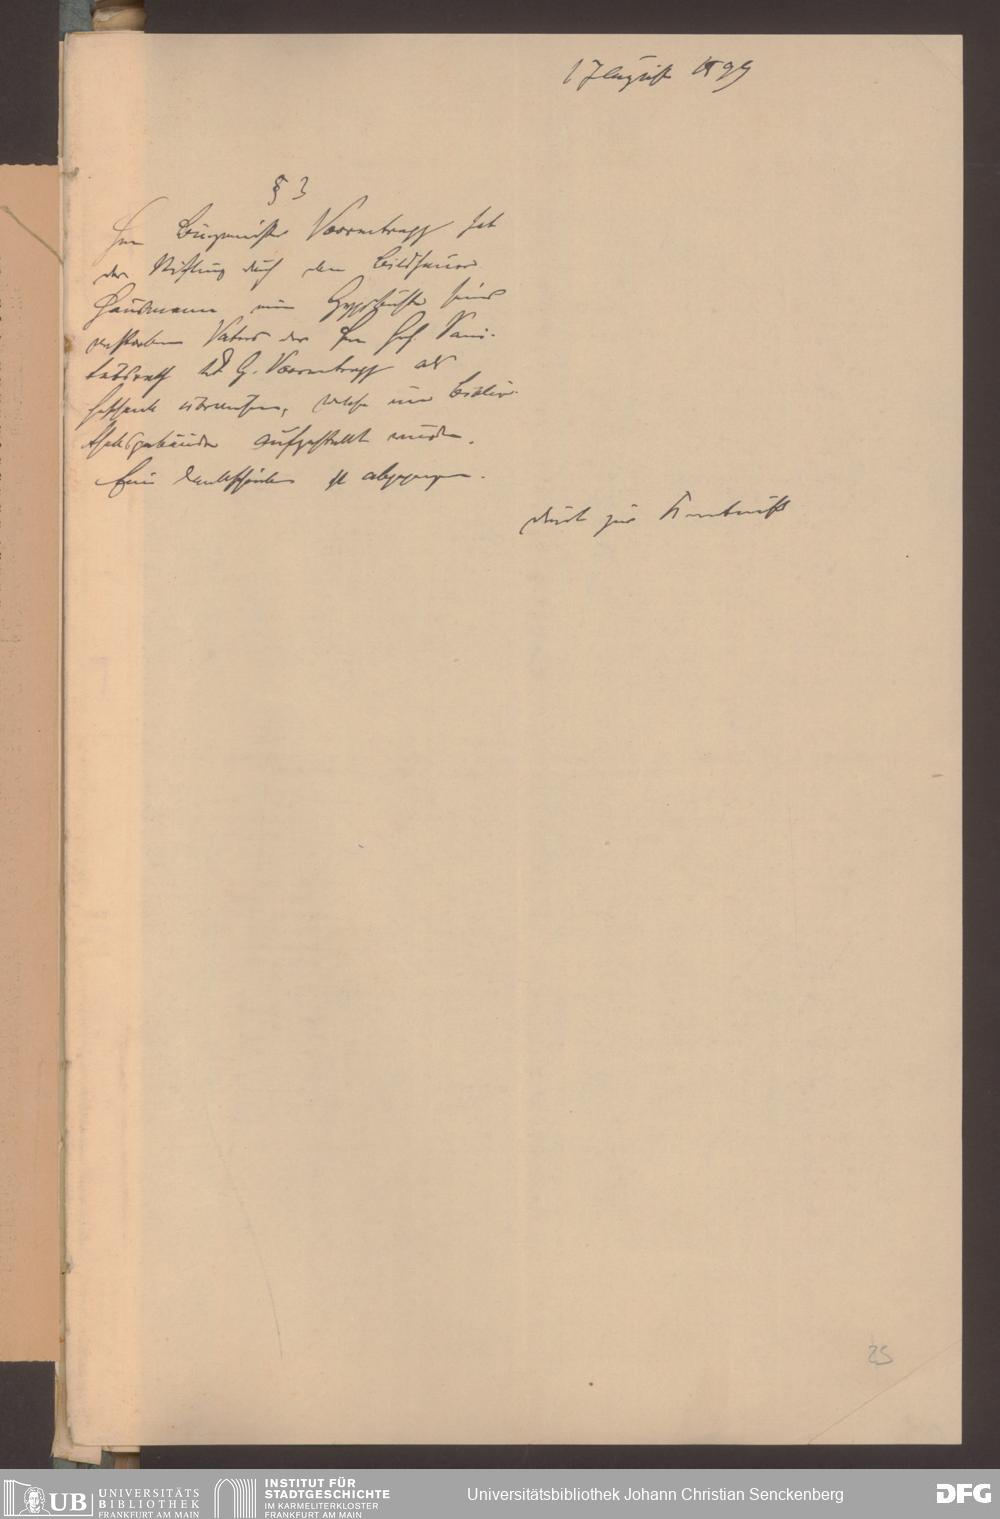 17 August 1899
§ 3
Herr Bürgermeister Varrentrapp hat
der Stiftung durch den Bildhauer
Hausmann eine Gypsbüste seines
verstorbenen Vaters des Herrn Geh. Sani-
tätsrath Dr. G. Varrentrapp als
Geschenk überwiesen, welche im Biblio-
theksgebäude aufgestellt wurde.
Ein Dankschreiben ist abgegangen.
dient zur Kenntniß
25
UB UNIVERSITÄTS
BIBLIOTHEK
FRANKFURT AM MAIN
INSTITUT FÜR
STADTGESCHICHTE
IM KARMELITERKLOSTER
FRANKFURT AM MAIN
Universitätsbibliothek Johann Christian Senckenberg
DFG